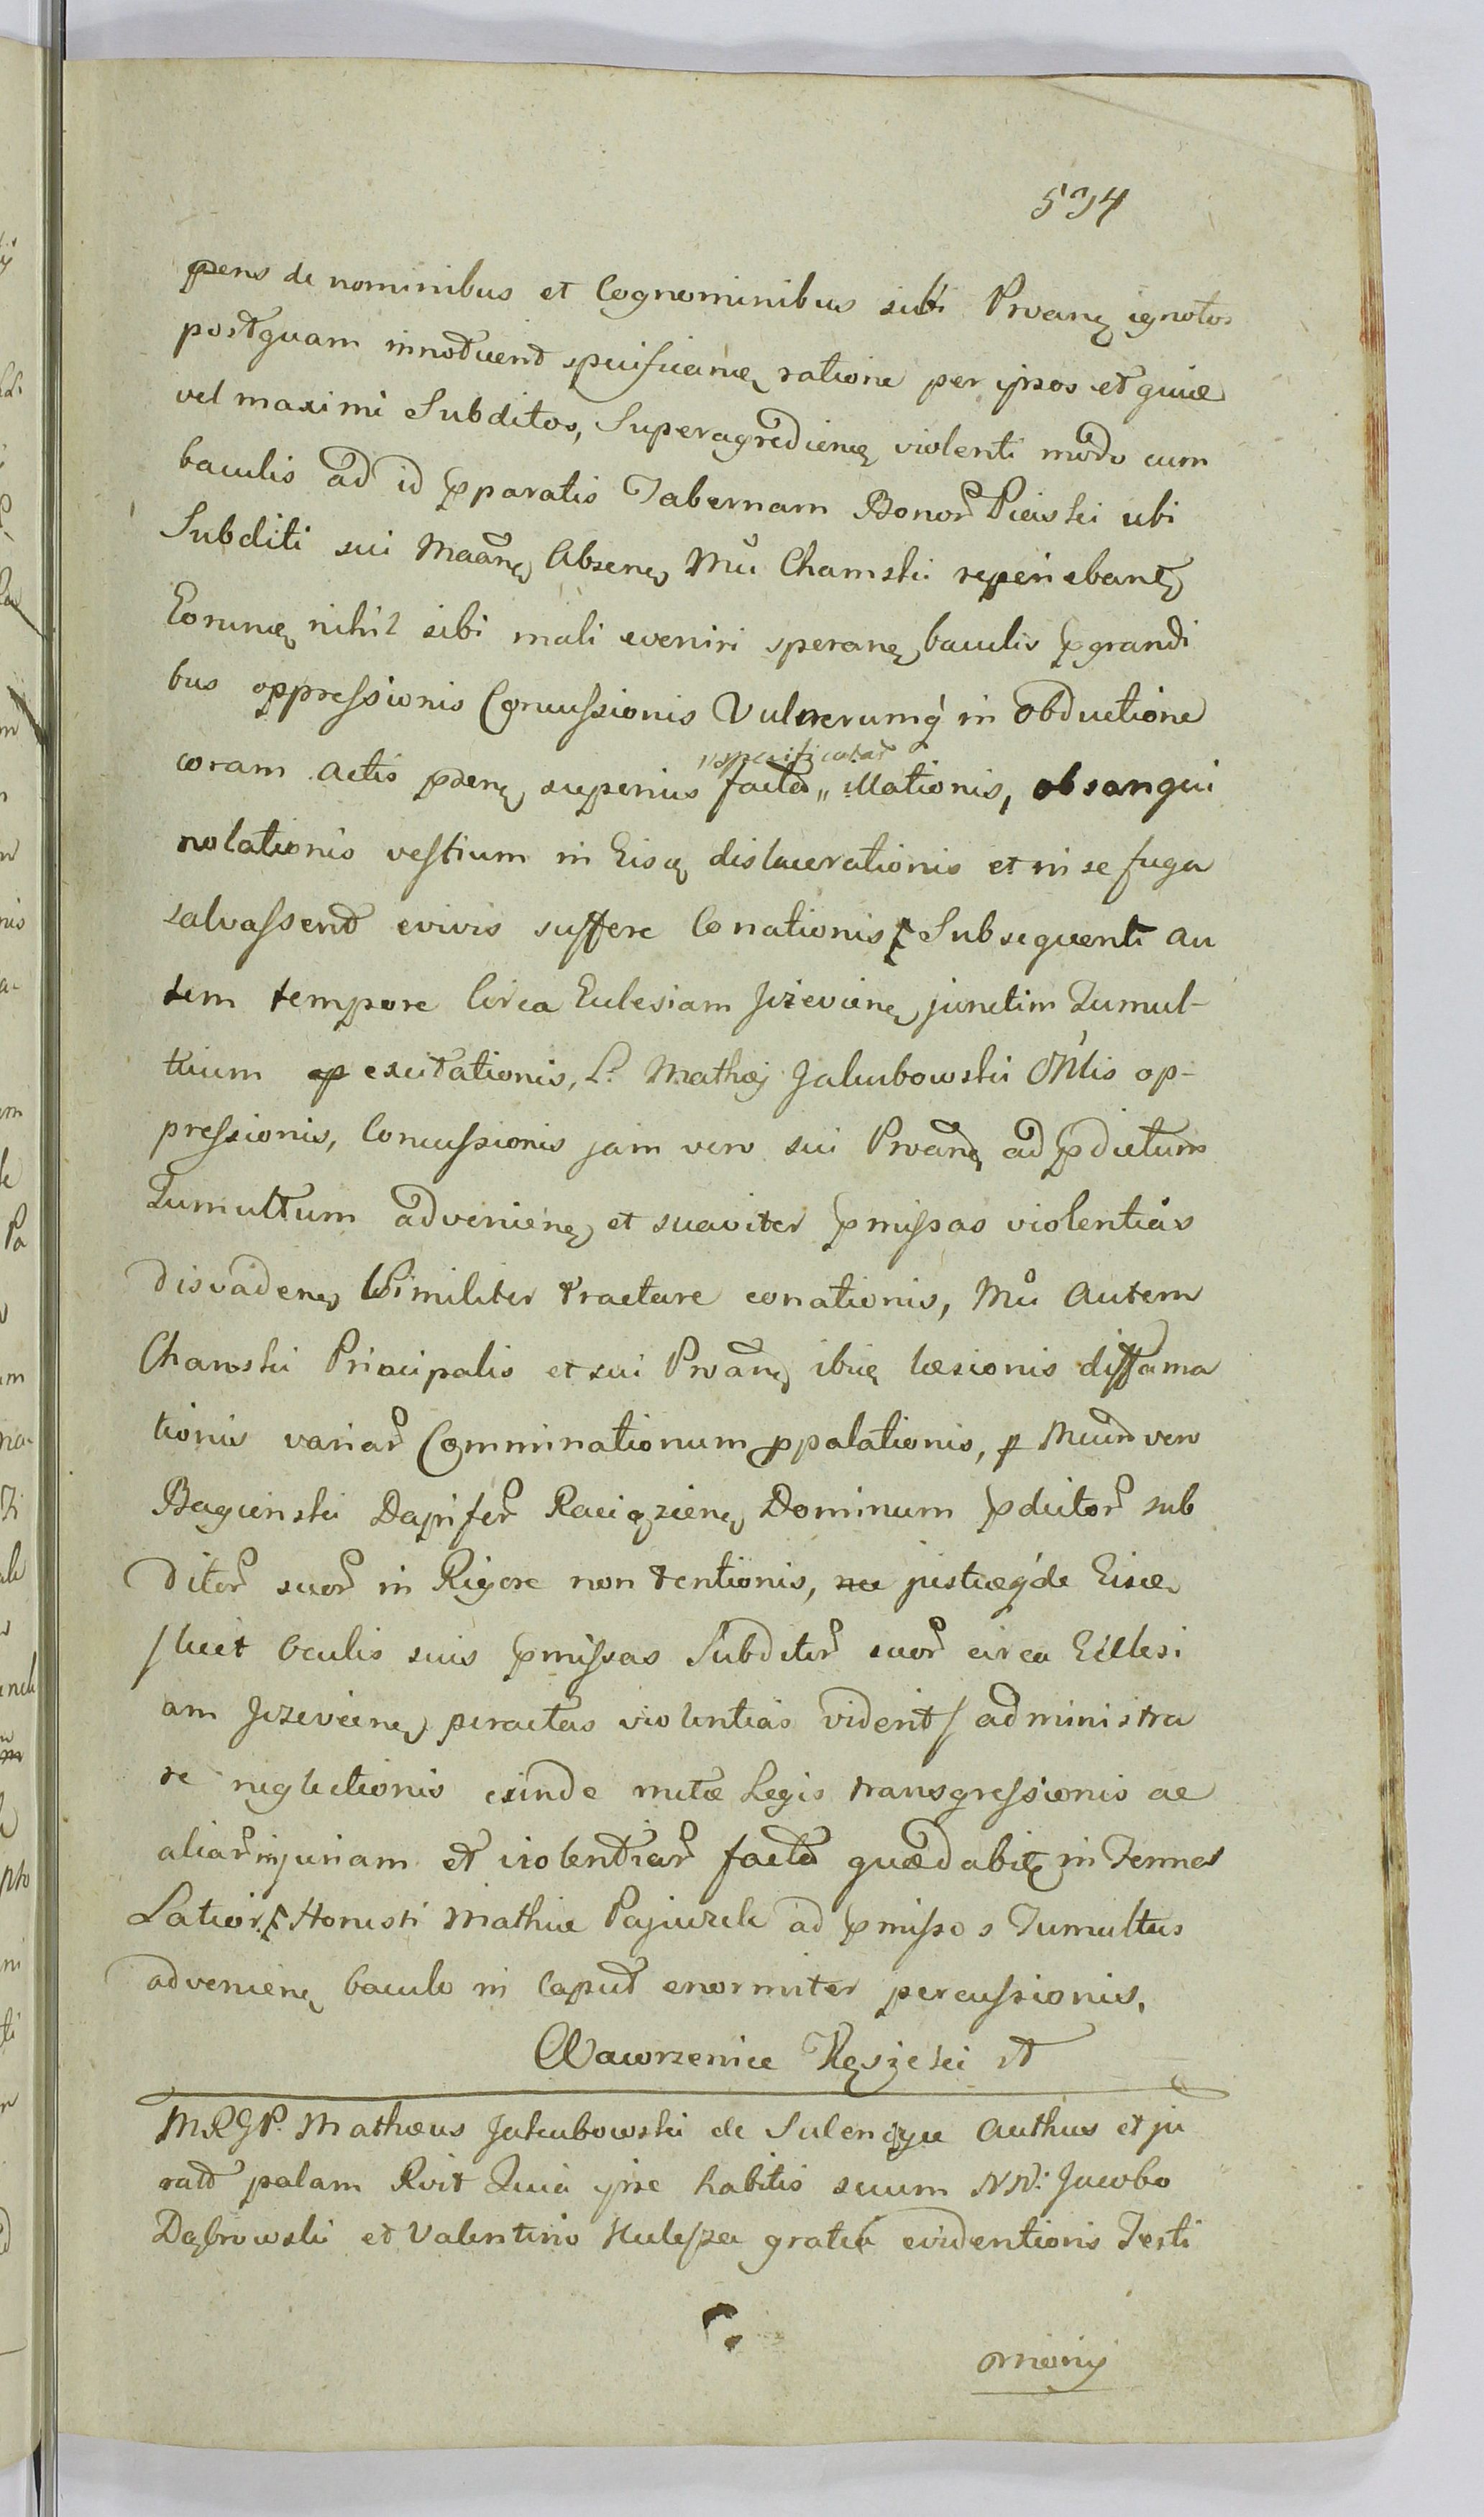 534
ppens de nominibus et Cognominibus sibi Proanẹ ignotos
postquam innotuend specificanẹ ratione per ipsos et quiæ
vel maximi Subditos, Superagredienẹ violenti modo cum
baculis ad id pparatis Tabernam Bonor Pieiski ubi
Subditi sui Maanẹ Absenẹ Mu Chamski reperiebantẹ
Eorumẹ nihil sibi mali eveniri speranẹ baculis pgrandi
bus oppressionis Concussionis Vulnerumq in obductione
coram actis psenẹ superius specificatar facta „ illationis, obsangui
nolationis vestium in Eisẹ dislacerationis et ni se fuga
salvassend evivis suffere Conationis Subsequenti au
tem tempore Circa Eclesiam Jizevienẹ junctim Tumul-
tuum excitationis, L. Mathej Jakubowski Ohlis op-
pressionis, Concussionis jam vero sui Proanẹ ad pdictum
Tumultum advenienẹ et suaviter pmissas violentias
disvadenẹ Similiter tractare conationis, Mu Autem
Chamski Principalis et sui Proanẹ ibiẹ læsionis diffama
tionis variar Comminationum ppalationis, Mcum vero
Bagienski Dapifer Raciązienẹ Dominum pdictor sub
ditor suor in Rigore non tentionis, justæq de Eisæ
/ licet Oculis suis pmissas Subditor suor circa Ecclesi
am Jezevienẹ peractas violentias viderit / administra
re neglectionis exinde metæ Legis transgressionis ac
aliar injuriam et violentiar facta quædabitẹ in Termes
Latior. Honesti Mathiæ Pajuzek ad pmissos Tumultus
advenienẹ baculo in Caput enormiter percussionis,
Wawrzeniec Kęszeki et
MRGP. Mathæus Jakubowski de Sulencyce Authus et ju
ratd palam Rvit Quia ipse habitis secum NN: Jacobo
Dąbrowski et Valentino Kulesza gratia evidentioris Testi
moniy